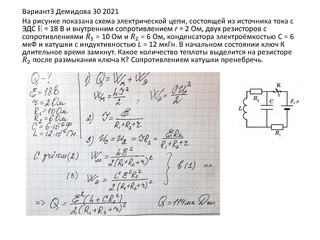 Вариант3 Демидова 30 2021
На рисунке показана схема электрической цепи, состоящей из источника тока с
ЭДС E = 18 В и внутренним сопротивлением r = 2 Ом, двух резисторов с
сопротивлениями R₁ = 10 Ом и R₂ = 6 Ом, конденсатора электроёмкостью C = 6
мкФ и катушки с индуктивностью L = 12 мкГн. В начальном состоянии ключ К
длительное время замкнут. Какое количество теплоты выделится на резисторе
R₂ после размыкания ключа К? Сопротивлением катушки пренебречь.
Q - ?
E = 18В
r = 2 Ом
R₁ = 10 Ом
R₂ = 6 Ом
C = 6·10⁻⁶ Ф
L = 12·10⁻⁶ Гн
1) Q = Wм + Wэ
Wм = LI²/2, Wэ = CU²/2
2) I = E/(R₁+R₂+r)
3) U = U₂ = IR₂ = ER₂/(R₁+R₂+r)
С учётом (2) Wм = LE²/(2(R₁+R₂+r)²)
(3) Wэ = CE²R₂²/(2(R₁+R₂+r)²) в (1) ⇒
⇒ Q = E²(L+CR₂²)/(2(R₁+R₂+r)²) Q = 114мкДж
R₁
К
L
C
R₂
E, r